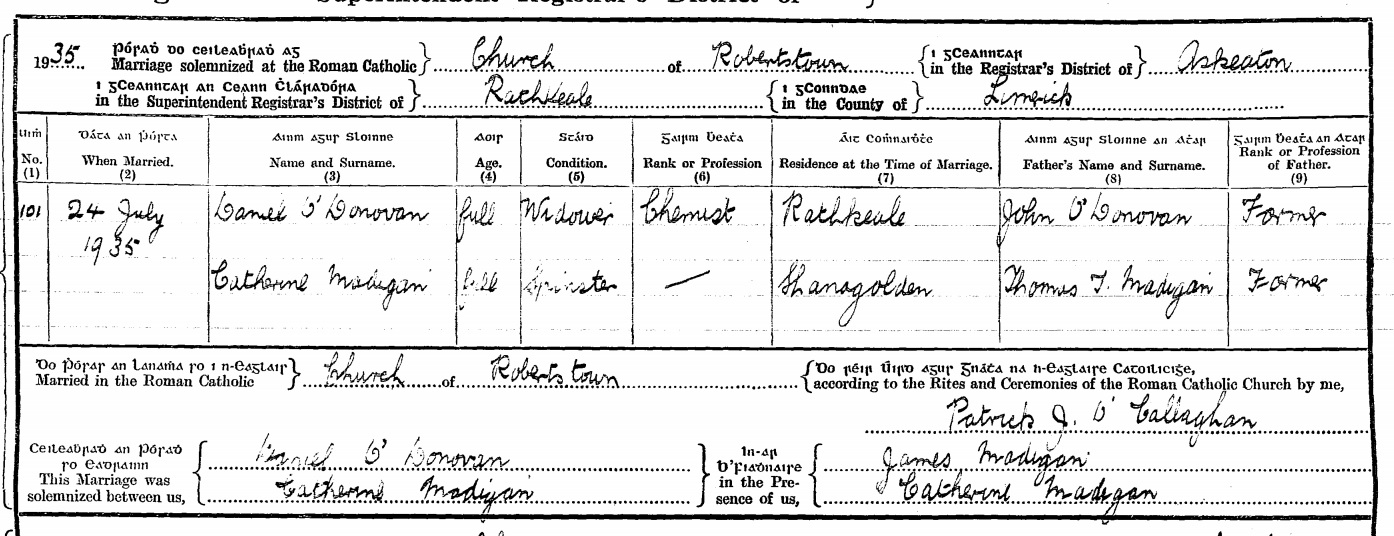 Superintendent Registrar's District of
1935 Pórað do ceileabrað ag Marriage solemnized at the Roman Catholic Church of Robertstown i gCeanntar in the Registrar's District of Askeaton
i gCeanntar an Ceann Čláraðóra in the Superintendent Registrar's District of Rathkeale i gConndae in the County of Limerick
Uim Dáta an Pórta Ainm agus Sloinne Aois Stáid Gairm Beata Áit Comnuiðte Ainm agus Sloinne an Atar Gairm Beata an Atar
No. When Married. Name and Surname. Age. Condition. Rank or Profession Residence at the Time of Marriage. Father's Name and Surname. Rank or Profession of Father.
(1) (2) (3) (4) (5) (6) (7) (8) (9)
101 24 July 1935 Daniel O'Donovan full Widower Chemist Rathkeale John O'Donovan Farmer
Catherine Madigan full Spinster — Shanagolden Thomas J. Madigan Farmer
Do Pórar an lanama so i n-Eaglair Married in the Roman Catholic Church of Robertstown Do réir Uird agus Gnáta na h-Eaglaire Catoilicige, according to the Rites and Ceremonies of the Roman Catholic Church by me,
Patrick J. O'Callaghan
Ceileabrað an Pórað so eadrainn This Marriage was solemnized between us, Daniel O'Donovan Catherine Madigan In-ar b'fiaðnaire in the Presence of us, James Madigan Catherine Madigan